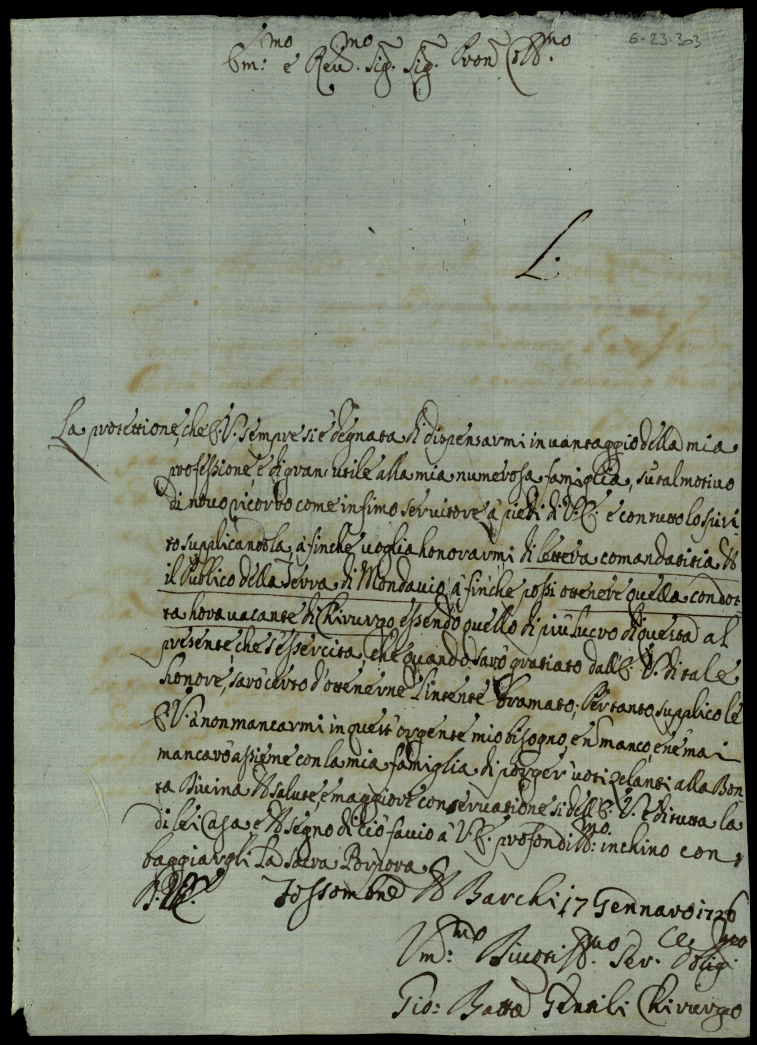 6-23-303
Em:mo e Reu.mo Sig. Sig. Pron Coll.mo
L.
La protettione, che E.V. sempre si è degnata di dispensarmi in uantaggio della mia
professione, è di gran utile alla mia numerosa famiglia, su tal motiuo
di nouo ricorro come infimo seruitore à piedi di V.E. e con tutto lo spiri-
to supplicandola, à finche uoglia honorarmi di lettera comandatitia
il Publico della Terra di Mondauio, à finche possi ottenere quella condot-
ta hora uacante di Chirurgo, essendo quello di più lucro di questa al
presente, che s'essercita, che quando sarò gratiato dall'E.V. di tale
honore, sarò certo d'ottenerne l'intente bramato; Pertanto supplico le
E.V. à non mancarmi in quest'orgente mio bisogno, en manco, e ne mai
mancarò assieme con la mia famiglia di porger uoti zelanti alla Bon-
tà Diuina salute, e maggiore conseruatione si dell'E.V. e di tutta la
di lei Casa, e segno di ciò faccio à V.E. profondiss:mo inchino con
baggiargli La Sacra Porpora
D.V.E. Fossombne Barchi 17 Gennaro 1726
Vm:mo Diuotiss.mo Ser. Oblig.mo
Gio: Batta Gentili Chirurgo